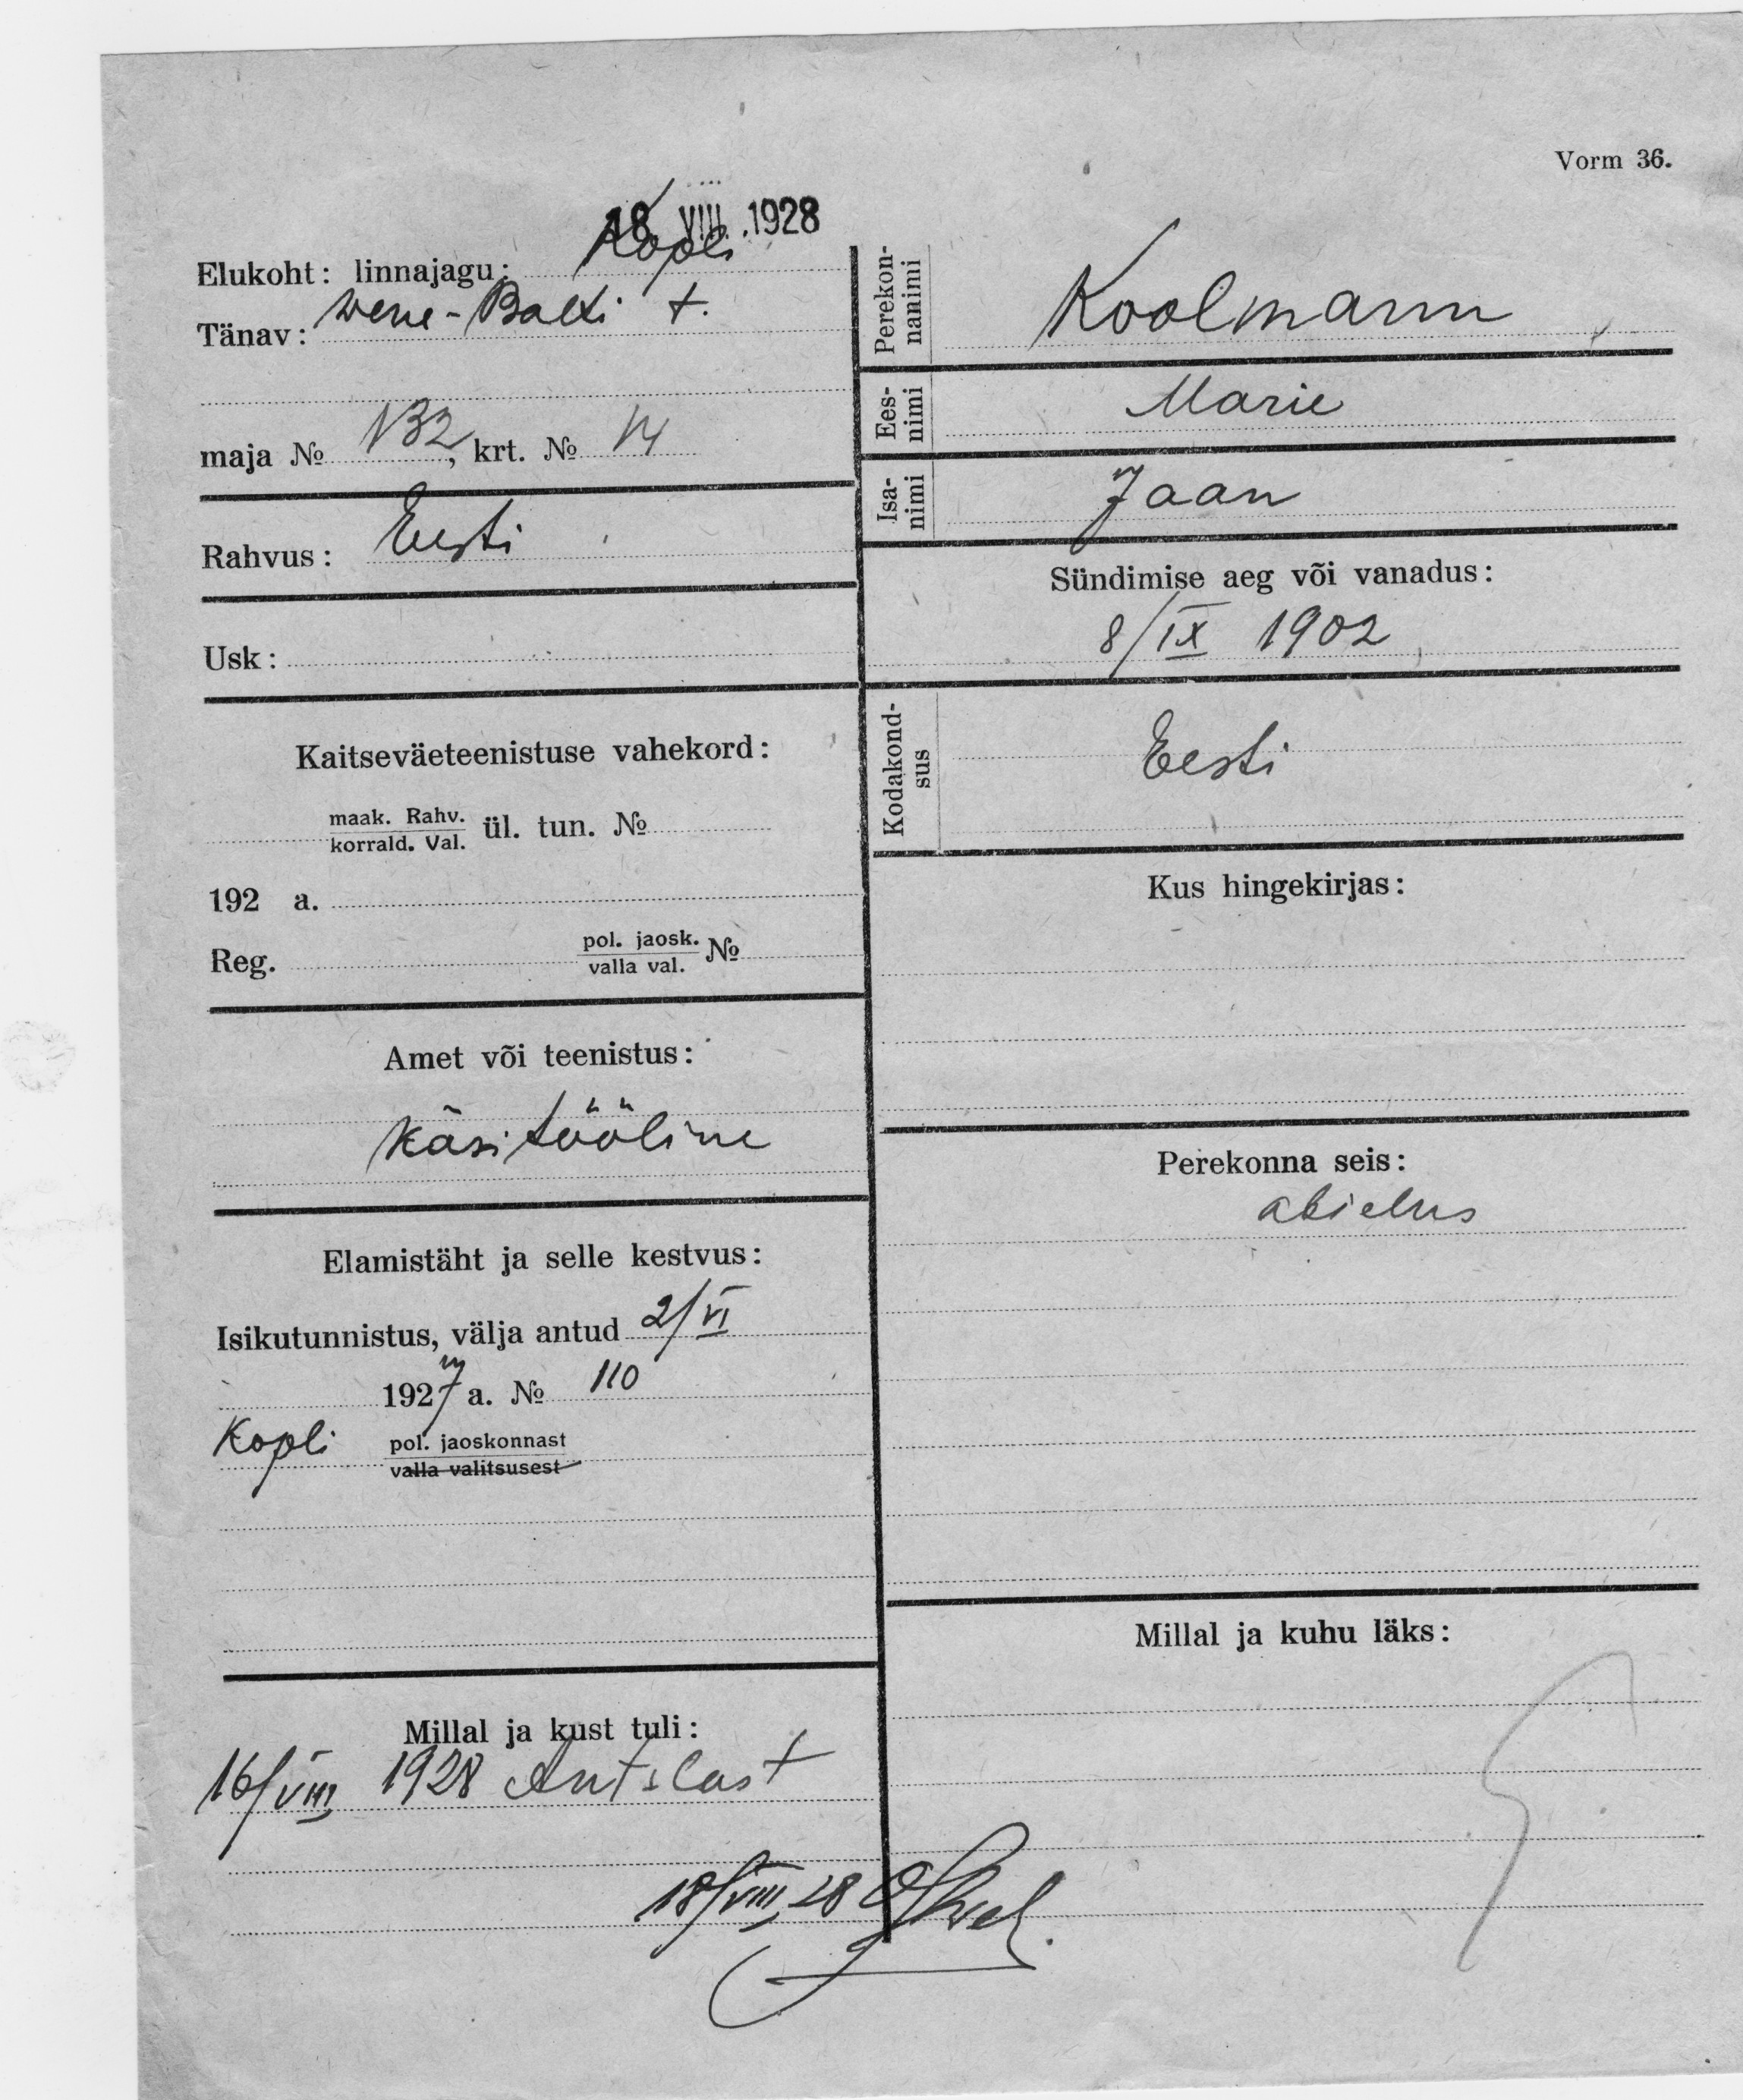 Vorm 36.
18. VIII. 1928
Elukoht: linnajagu: Kopli
Tänav: Wene-Balti t.
maja № 132, krt. № 14
Rahvus: Eesti
Usk:
Kaitseväeteenistuse vahekord:
maak. Rahv.
korrald. Val. ül. tun. №
192 a.
Reg. pol. jaosk. №
valla val.
Amet või teenistus:
Käsitööline
Elamistäht ja selle kestvus:
Isikutunnistus, välja antud 2/VI
1927 a. № 110
Kopli pol. jaoskonnast
valla valitsusest
Millal ja kust tuli:
16/VIII 1928 Antslast
18/VIII 28
Perekon-
nanimi
Koolmann
Ees-
nimi
Marie
Isa-
nimi
Jaan
Sündimise aeg või vanadus:
8/IX 1902
Kodakond-
sus
Eesti
Kus hingekirjas:
Perekonna seis:
abielus
Millal ja kuhu läks: